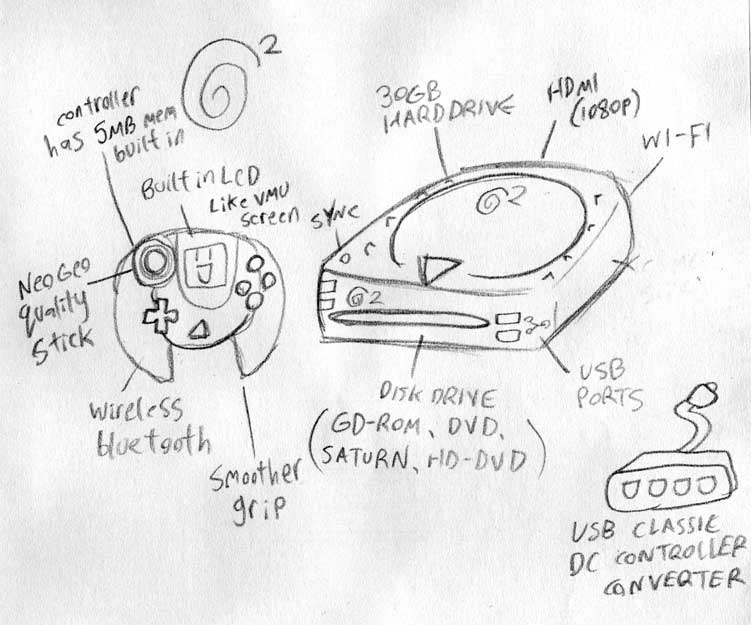 2
controller
has 5MB mem
built in
Built in LCD
Like VMU
screen
NeoGeo
quality
stick
wireless
bluetooth
smoother
grip
SYNC
30GB
HARD DRIVE
HDMI
(1080P)
WI-FI
2
2
DISK DRIVE
(GD-ROM, DVD,
SATURN, HD-DVD)
USB
PORTS
USB CLASSIC
DC CONTROLLER
CONVERTER